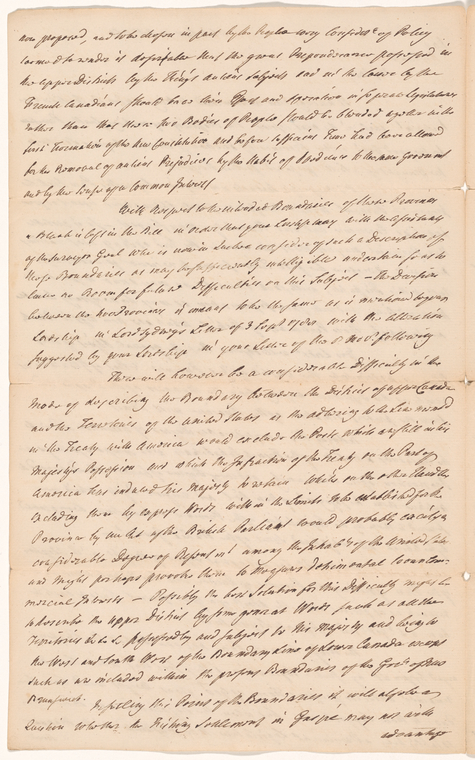 now proposed, and to be chosen in part by the People every Considn of Policy
seemed to render it desireable that the great Preponderance possessed in
the upper Districts by the King's antient Subjects and in the lower by the
French Canadians should have their Effect and operation in separate Legislatures
rather than that these two Bodies of People should be blended together in the
first Formation of the new Constitution and before sufficient Time had been allowed
for the Removal of antient Prejudices by the Habit of Obedience to the same Government
and by the Sense of a Common Interest
With Respect to the intended Boundaries of these Provinces
a Blank is left in the Bill in order that your Lordship may with the Assistance
of the Surveyor Genl who is now in Quebec consider of such a Description of
those Boundaries as may be sufficiently intelligible and certain so as to
leave no Room for future Difficulties on this Subject – the Division
between the two Provinces is meant to be the same as is mentioned to your
Lordship in Lord Sydney's Letter of 3 Sept 1788 with the Alteration
suggested by your Lordship in your Letter of the 8 Novr following
There will however be a considerable Difficulty in the
Mode of describing the Boundary between the District of upper Canada
and the Territories of the United States as the adhering to the Line mentd
in the Treaty with America would exclude the Posts which are still in his
Majesty's Possession and which the Infraction of the Treaty on the Part of
America has induced his Majesty to retain while on the other Hand the
including them by express Words within the Limits to be established for the
Province by an Act of the British Parliament would probably excite a
considerable Degree of Resentmt among the Inhabts of the United States
and might perhaps provoke them to Measures detrimental to our Com-
mercial Interests – Possibly the best Solution for this Difficulty might be
to describe the upper District by some general Words such as all the
Territories &c &c &c possessed by and subject to his Majesty and being to
the West and South West of the Boundary Line of Lower Canada except
such as are included within the present Boundaries of the Govt of New
Brunswick.
In settling this Point of the Boundaries it will also be a
Question whether the Fishing Settlement in Gaspé may not with
advantage